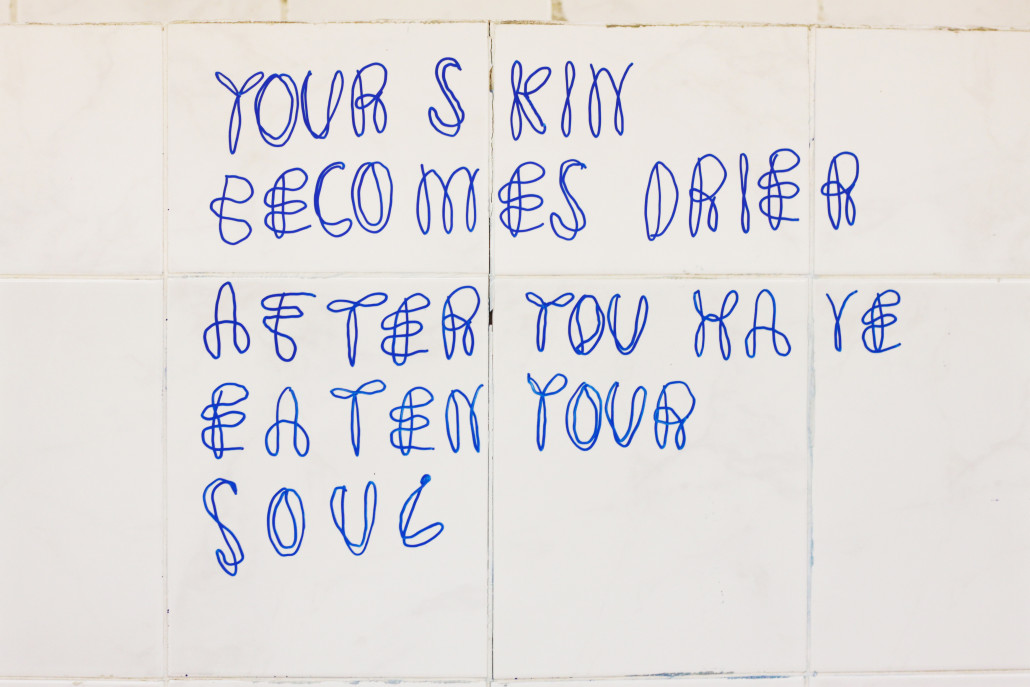 YOUR SKIN
BECOMES DRIER
AFTER YOU HAVE
EATEN YOUR
SOUL